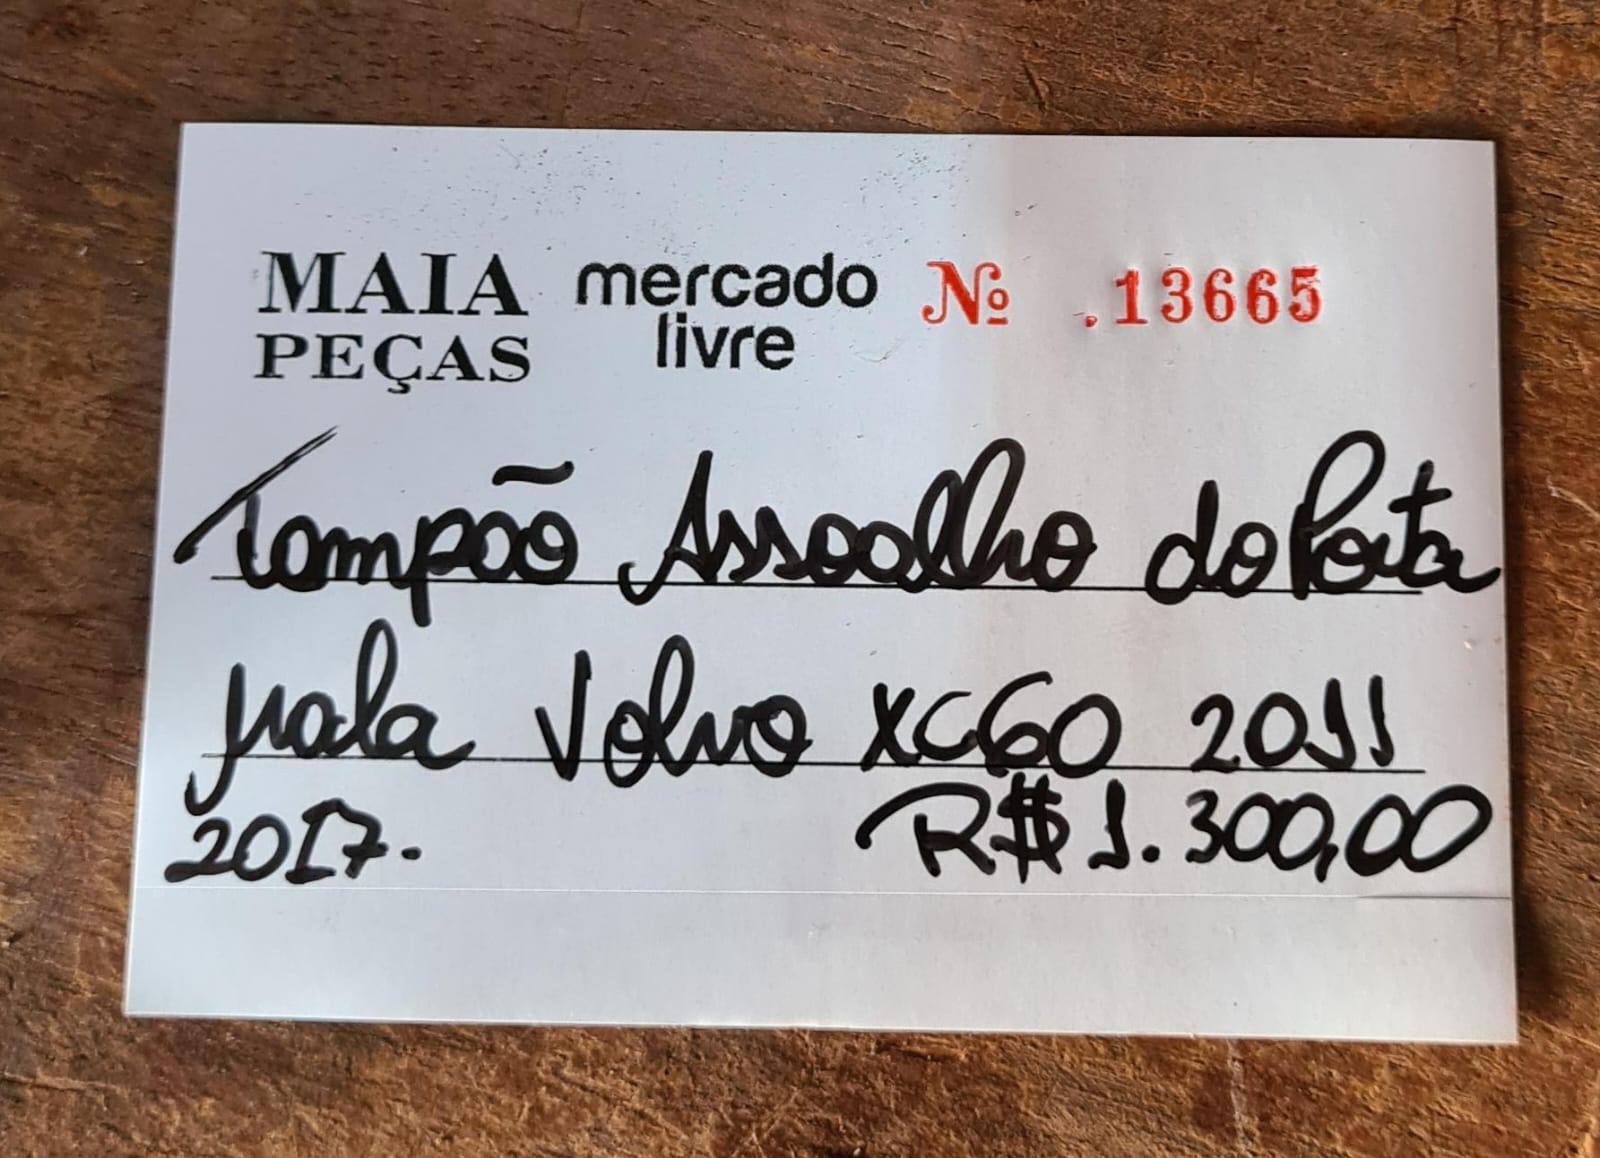 MAIA PEÇAS
mercado livre
Nº .13665
Tampão Assoalho do Porta
Mala Volvo XC60 2011
2017. R$ 1.300,00